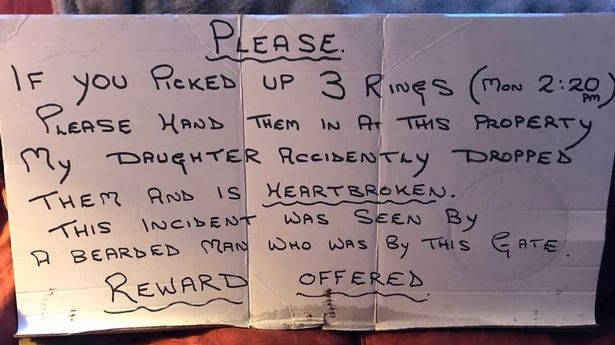 PLEASE.
IF YOU PICKED UP 3 RINGS (MON 2:20 PM)
PLEASE HAND THEM IN AT THIS PROPERTY
MY DAUGHTER ACCIDENTLY DROPPED
THEM AND IS HEARTBROKEN.
THIS INCIDENT WAS SEEN BY
A BEARDED MAN WHO WAS BY THIS GATE.
REWARD OFFERED.